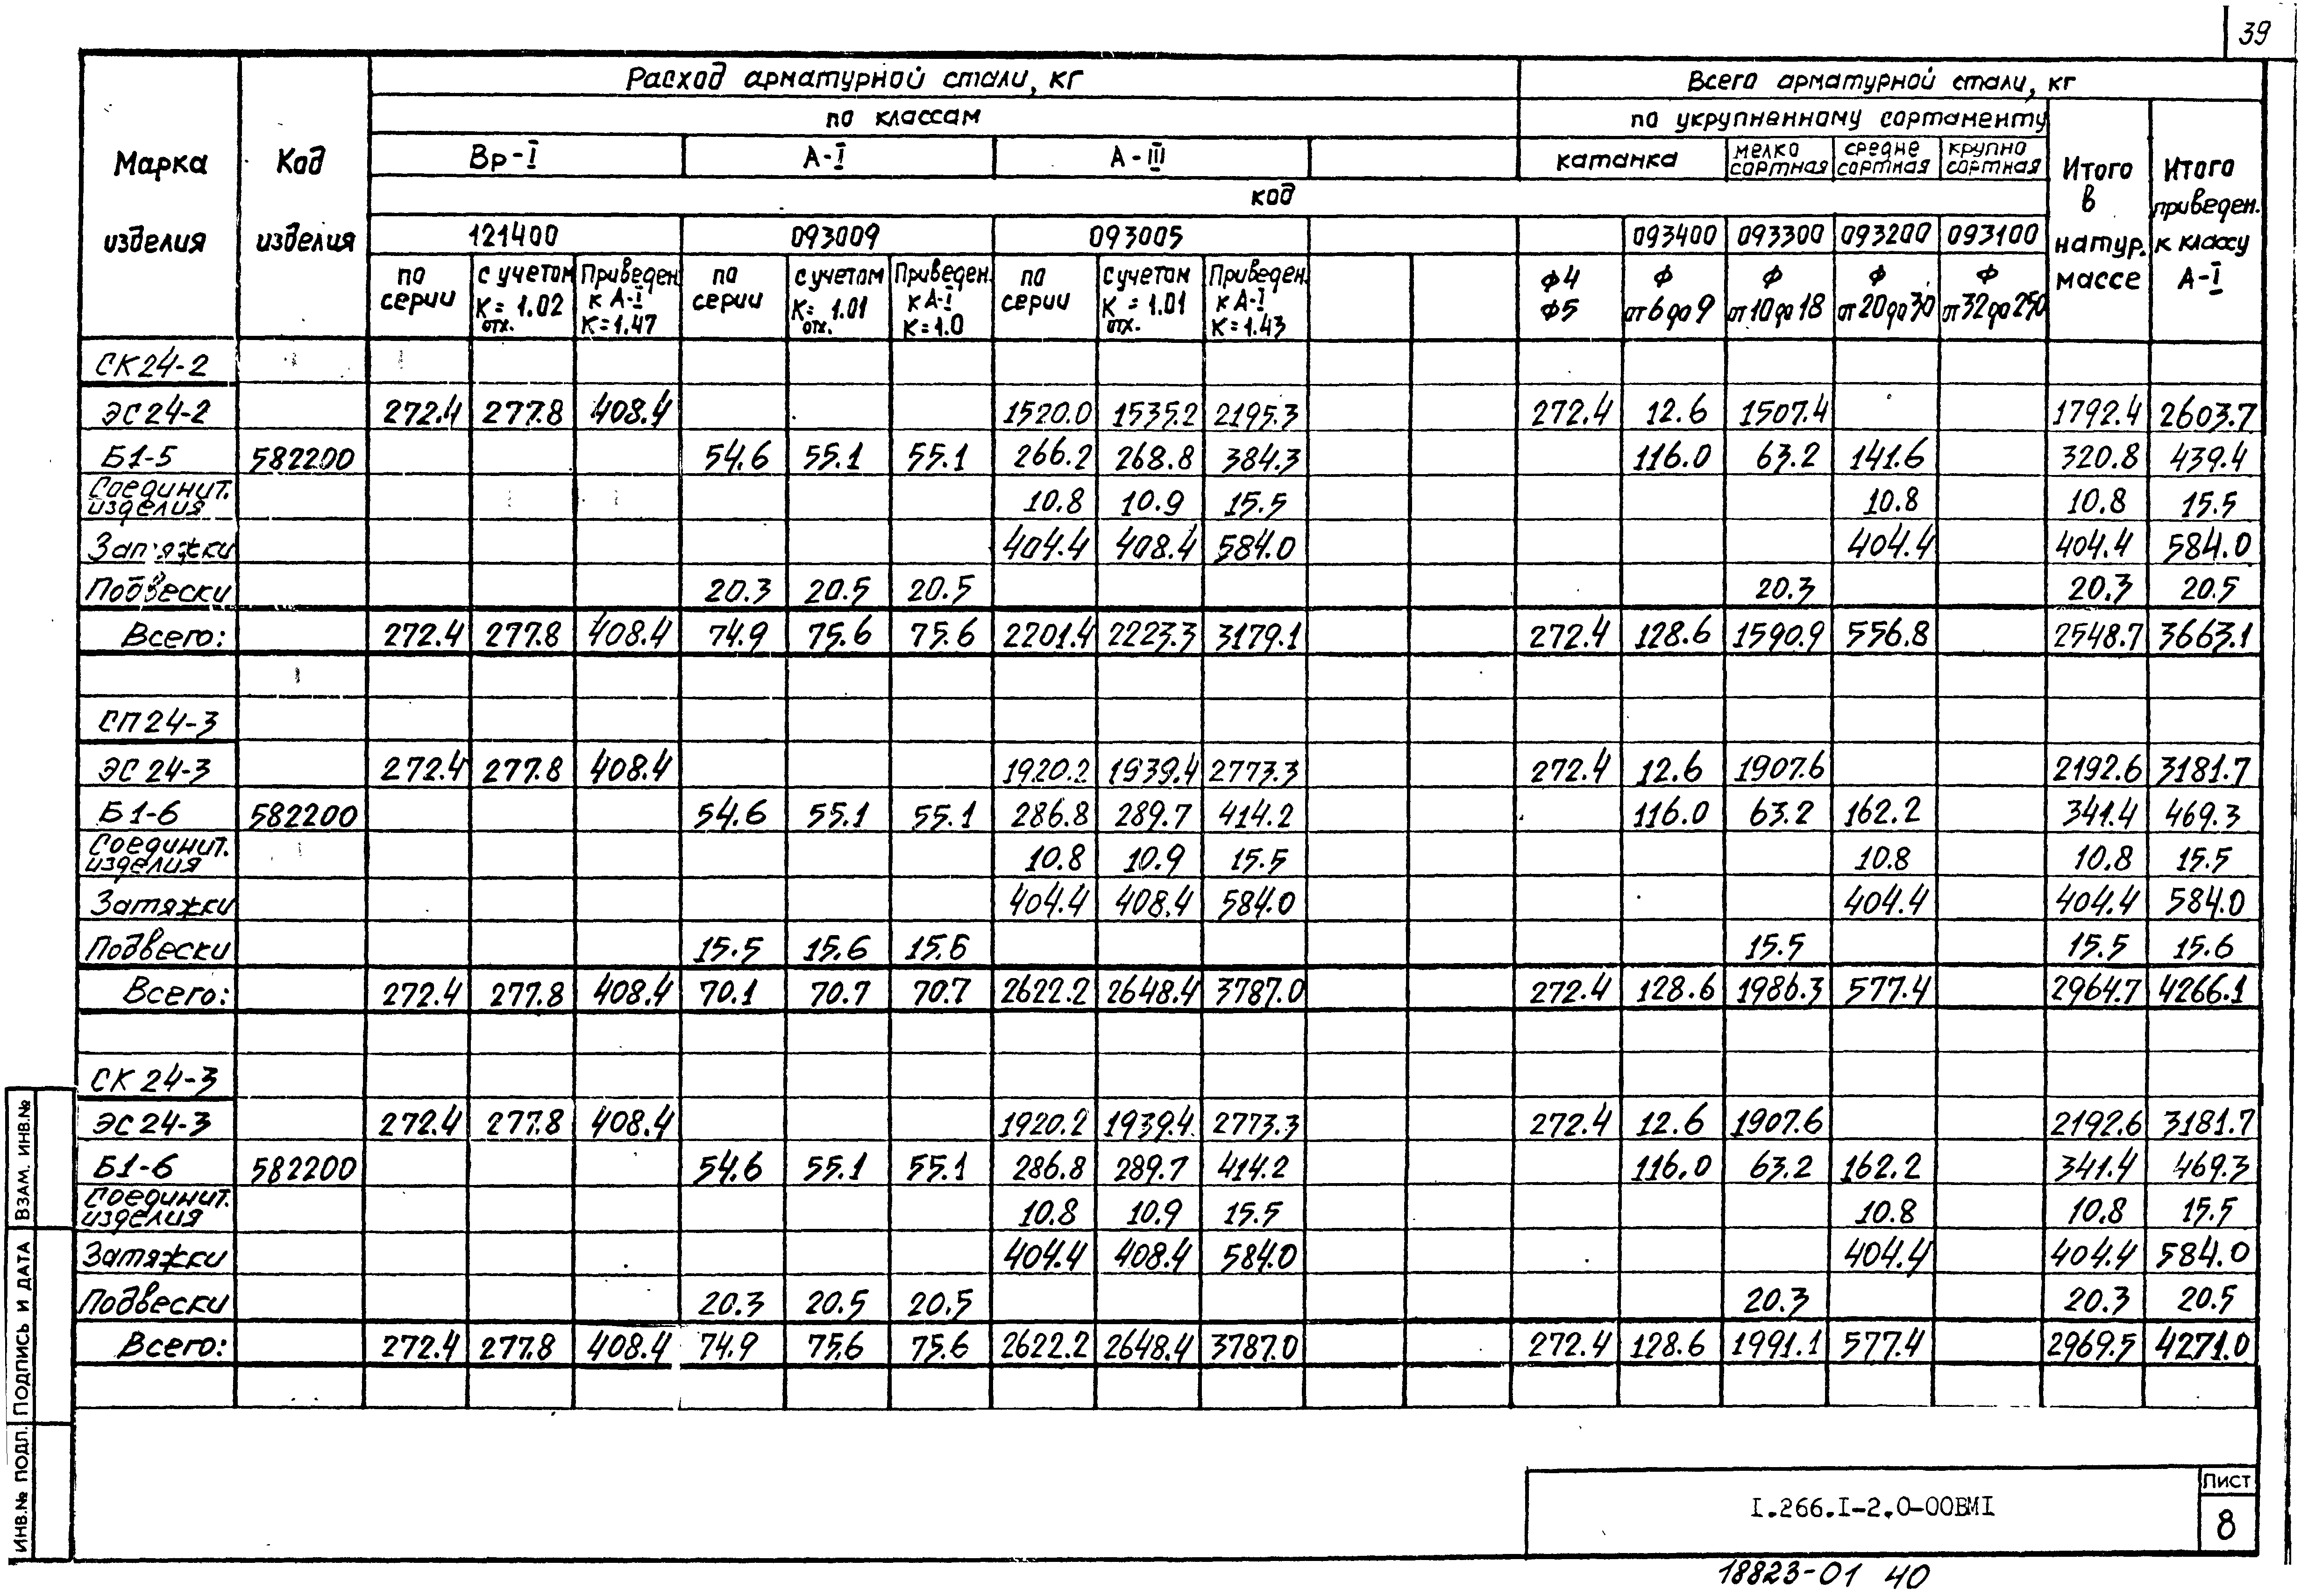 39
Расход арматурной стали, кг Всего арматурной стали, кг
по классам по укрупненному сортаменту
Марка изделия Код изделия Вр-I А-I А-III катанка мелко сортная средне сортная крупно сортная Итого в натур. массе Итого приведен. к классу А-I
код
121400 093009 093005 093400 093300 093200 093100
по серии с учетом Котх.=1.02 Приведен. к А-I К=1.47 по серии с учетом Котх.=1.01 Приведен. к А-I К=1.0 по серии с учетом Котх.=1.01 Приведен. к А-I К=1.43 ф4 ф5 ф от 6 до 9 ф от 10 до 18 ф от 20 до 30 ф от 32 до 250
СК24-2
ЭС24-2 272.4 277.8 408.4 1520.0 1535.2 2195.3 272.4 12.6 1507.4 1792.4 2603.7
Б1-5 582200 54.6 55.1 55.1 266.2 268.8 384.3 116.0 63.2 141.6 320.8 439.4
Соединит. изделия 10.8 10.9 15.5 10.8 10.8 15.5
Затяжки 404.4 408.4 584.0 404.4 404.4 584.0
Подвески 20.3 20.5 20.5 20.3 20.3 20.5
Всего: 272.4 277.8 408.4 74.9 75.6 75.6 2201.4 2223.3 3179.1 272.4 128.6 1590.9 556.8 2548.7 3663.1
СП24-3
ЭС24-3 272.4 277.8 408.4 1920.2 1939.4 2773.3 272.4 12.6 1907.6 2192.6 3181.7
Б1-6 582200 54.6 55.1 55.1 286.8 289.7 414.2 116.0 63.2 162.2 341.4 469.3
Соединит. изделия 10.8 10.9 15.5 10.8 10.8 15.5
Затяжки 404.4 408.4 584.0 404.4 404.4 584.0
Подвески 15.5 15.6 15.6 15.5 15.5 15.6
Всего: 272.4 277.8 408.4 70.1 70.7 70.7 2622.2 2648.4 3787.0 272.4 128.6 1986.3 577.4 2964.7 4266.1
СК24-3
ЭС24-3 272.4 277.8 408.4 1920.2 1939.4 2773.3 272.4 12.6 1907.6 2192.6 3181.7
Б1-6 582200 54.6 55.1 55.1 286.8 289.7 414.2 116.0 63.2 162.2 341.4 469.3
Соединит. изделия 10.8 10.9 15.5 10.8 10.8 15.5
Затяжки 404.4 408.4 584.0 404.4 404.4 584.0
Подвески 20.3 20.5 20.5 20.3 20.3 20.5
Всего: 272.4 277.8 408.4 74.9 75.6 75.6 2622.2 2648.4 3787.0 272.4 128.6 1991.1 577.4 2969.5 4271.0
ИНВ.№ ПОДЛ. ПОДПИСЬ И ДАТА ВЗАМ. ИНВ.№
I.266.I-2.0-00ВМI
Лист
8
18823-01 40